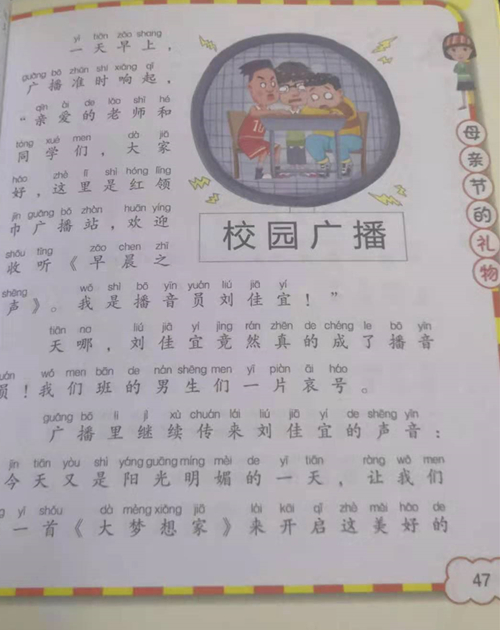 yì tiān zǎo shang
一天早上，
guǎng bō zhǔn shí xiǎng qǐ
广播准时响起，
qīn ài de lǎo shī hé
“亲爱的老师和
tóng xué men dà jiā
同学们，大家
hǎo zhè lǐ shì hóng lǐng
好，这里是红领
jīn guǎng bō zhàn huān yíng
巾广播站，欢迎
shōu tīng zǎo chen zhī
收听《早晨之
校园广播
shēng wǒ shì bō yīn yuán liú jiā yí
声》。我是播音员刘佳宜！”
tiān na liú jiā yí jìng rán zhēn de chéng le bō yīn
天哪，刘佳宜竟然真的成了播音
yuán wǒ men bān de nán shēng men yí piàn āi háo
员！我们班的男生们一片哀号。
guǎng bō li jì xù chuán lái liú jiā yí de shēng yīn
广播里继续传来刘佳宜的声音：
jīn tiān yòu shì yáng guāng míng mèi de yì tiān ràng wǒ men
今天又是阳光明媚的一天，让我们
yì shǒu dà mèng xiǎng jiā lái kāi qǐ zhè měi hǎo de
一首《大梦想家》来开启这美好的
母亲节的礼物
47